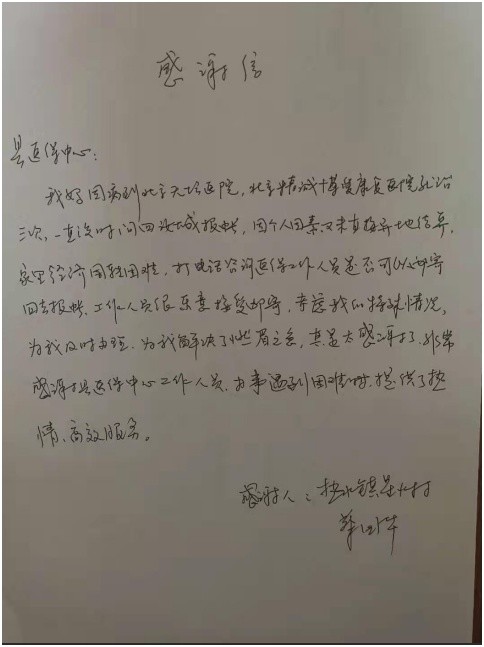 感谢信
县医保中心:
我好因病到北京天坛医院,北京精诚博爱康复医院就诊
三次,一直没时间回城报帐,因个人因素又未直接异地结算,
家里经济困难,打电话咨询医保工作人员是否可以邮寄
回去报帐,工作人员很乐意接受邮寄,考虑我的特殊情况,
为我及时办理,为我解决了燃眉之急,真是太感谢了,非常
感谢县医保中心工作人员,办事遇到困难时,提供了热
情、高效服务。
感谢人:镇村